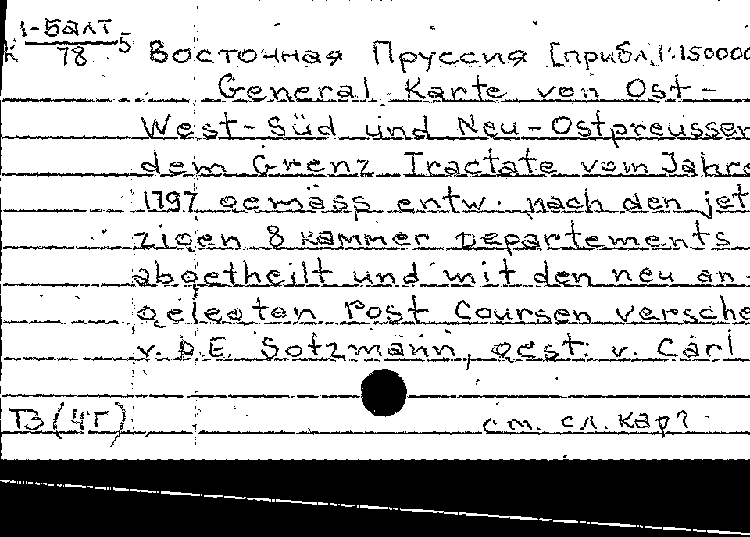 1-Балт
К 78 5 Восточная Пруссия [прибл. 1:150000
General Karte von Ost-
West-Süd und Neu-Ostpreussen
dem Grenz Tractate vom Jahre
1797 gemäss entw. nach den jet
zigen 8 Kammer Departements
abgetheilt und mit den neu an-
gelegten Post Coursen versche
v. D.E. Sotzmann, gest. v. Carl
ТЗ (4Г) см. сл. кар?